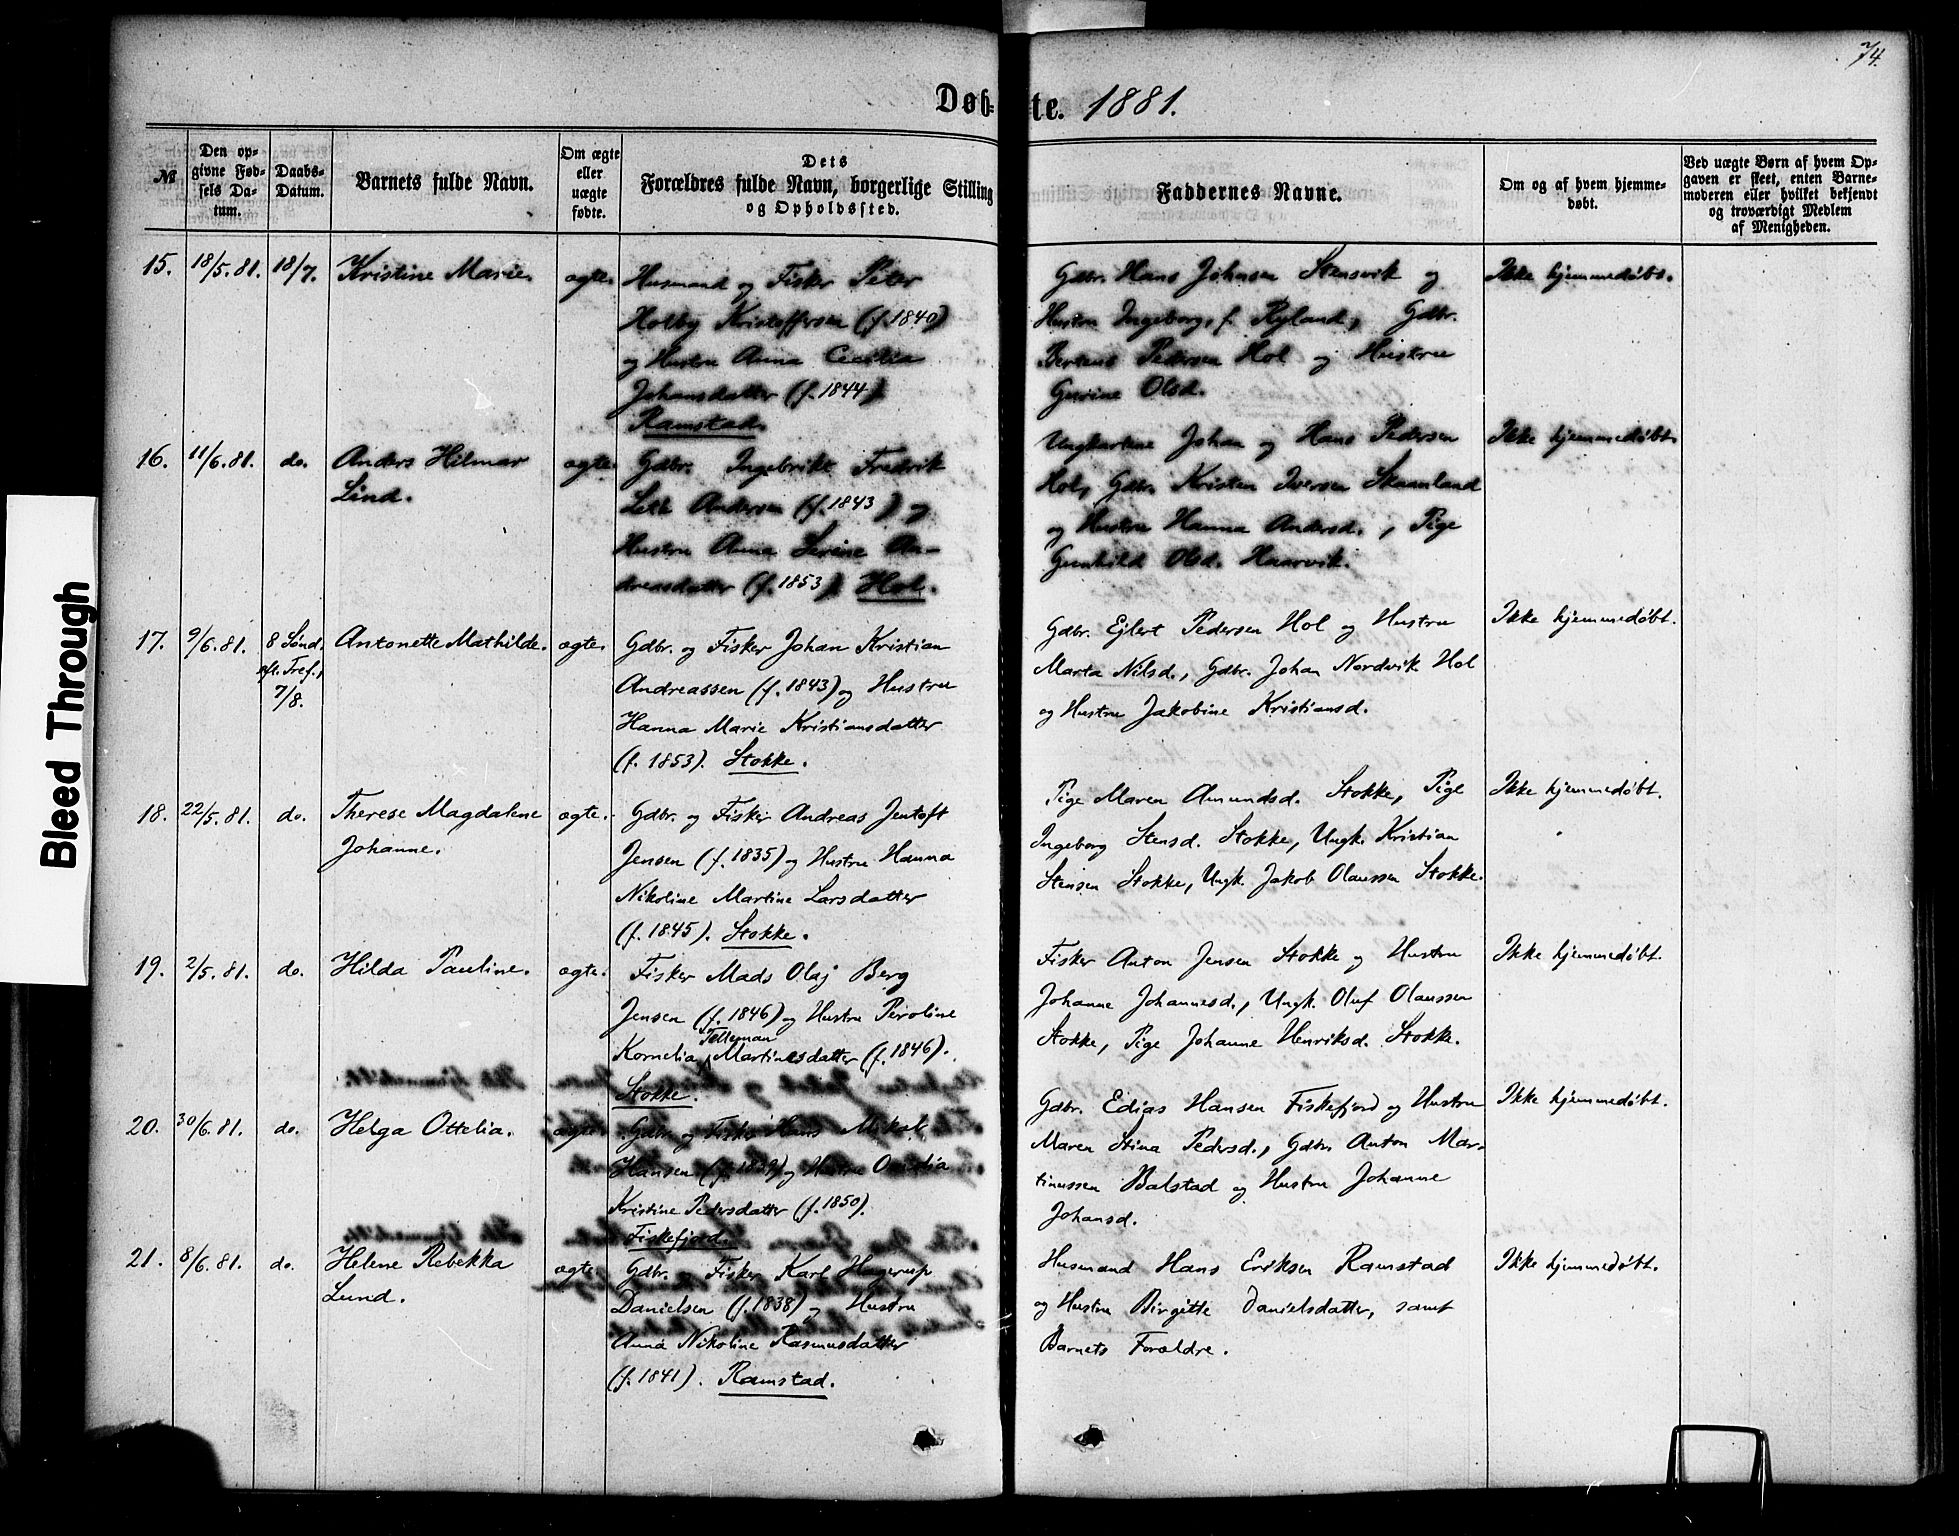 74.
Døb- te. 1881.
№
Den op-
givne Fød-
sels Da-
tum.
Daabs-
Datum.
Barnets fulde Navn.
Om ægte
eller
uægte
fødte.
Dets
Forældres fulde Navn, borgerlige Stilling
og Opholdssted.
Faddernes Navne.
Om og af hvem hjemme-
døbt.
Ved uægte Børn af hvem Op-
gaven er skeet, enten Barne-
moderen eller hvilket bekjendt
og troværdigt Medlem
af Menigheden.
15. 18/5.81. 18/7. Kristine Marie. ægte.
Husmand og Fisker Peter
Holby Kristoffersen (f. 1840)
og Hustru Anna Cecilia
Johansdatter (f. 1844)
Ramstad.
Gdbr. Hans Johnsen Stensvik og
Hustru Ingeborg, f. Ryland, Gdbr.
Bertens Pedersen Hol og Hustru
Gurine Olsd.
Ikke hjemmedøbt.
16. 11/6.81. do. Anders Hilmar
Lind.
ægte.
Gdbr. Ingebrikt Fredrik
Leth Andersen (f. 1843) og
Hustru Anna Serine An-
dreasdatter (f. 1853) Hol.
Ungkarlene Johan og Hans Pedersen
Hol, Gdbr. Kristen Iversen Skaanland
og Hustru Hanna Andersd., Pige
Gunhild Olsd. Haarvik.
Ikke hjemmedøbt.
17. 9/6.81. 8 Sønd.
eft. Tref.,
7/8.
Antonette Mathilde. ægte.
Gdbr. og Fisker Johan Kristian
Andreassen (f. 1843) og Hustru
Hanna Marie Kristiansdatter
(f. 1853). Stokke.
Gdbr. Ejlert Pedersen Hol og Hustru
Marta Nilsd., Gdbr. Johan Nordvik Hol
og Hustru Jakobine Kristiansd.
Ikke hjemmedøbt.
18. 22/5.81. do. Therese Magdalene
Johanne.
ægte.
Gdbr. og Fisker Andreas Jentoft
Jensen (f. 1835) og Hustru Hanna
Nikoline Martine Larsdatter
(f. 1845). Stokke.
Pige Maren Amundsd. Stokke, Pige
Ingeborg Stensd. Stokke, Ungk. Kristian
Stensen Stokke, Ungk. Jakob Olaussen Stokke.
Ikke hjemmedøbt.
19. 2/5.81. do. Hilda Pauline. ægte.
Fisker Mads Olaj Berg
Jensen (f. 1846) og Hustru Peroline
Kornelia Telleman Martinesdatter (f. 1846).
Stokke.
Fisker Anton Jensen Stokke og Hustru
Johanne Johannesd., Ungk. Oluf Olaussen
Stokke, Pige Johanne Henriksd. Stokke.
Ikke hjemmedøbt.
20. 30/6.81. do. Helga Ottelia. ægte.
Gdbr og Fisker Hans Mikal
Hansen (f. 1839) og Hustru
Kristine Pedersdatter (f. 1850).
Fiskefjord.
Gdbr. Edias Hansen Fiskefjord og Hustru
Maren Stina Pedersd., Gdbr Anton Mar-
tinussen Balstad og Hustru Johanne
Johansd.
Ikke hjemmedøbt.
21. 8/6.81. do. Helene Rebekka
Lund.
ægte
Gdbr. Fisker Karl Hagerup
Danielsen (f. 1838) og Hustru
Anna Nikoline Rasmusdatter
(f. 1841). Ramstad.
Husmand Hans Eriksen Ramstad
og Hustru Birgitte Danielsdatter, samt
Barnets Forældre.
Ikke hjemmedøbt.
Bleed Through